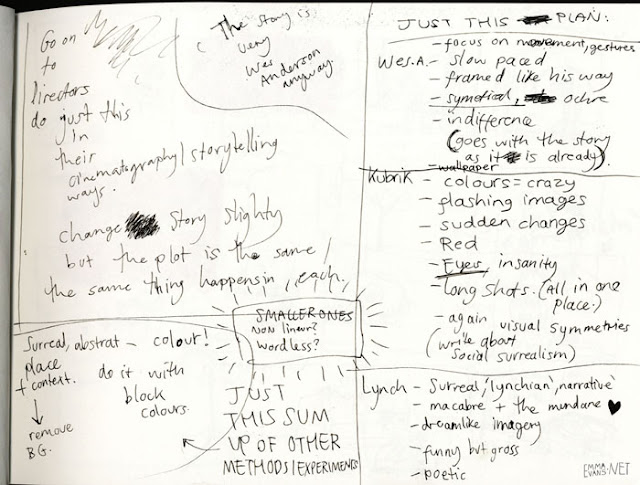 Go on
to
directors
do just this
in
their
cinematography/storytelling
ways.
change story slighty
but the plot is the same/
the same thing happens in each.
The story is
very
Wes
Anderson
anyway.
Surreal, abstrat – colour!
place
+ context.
do it with
block
colours.
remove
BG.
SMALLER ONES
NON linear?
wordless?
JUST
THIS SUM
UP OF OTHER
METHODS/EXPERIMENTS
JUST THIS PLAN:
- focus on movement, gestures
Wes.A. - slow paced
- framed like his way
- symetical, ochre
- indifference
(goes with the story
as it is already).
- wallpaper
Kubrik - colours = crazy
- flashing images
- sudden changes
- Red
- Eyes, insanity
- long shots. (All in one
place.)
- again visual symmetries
(write about
social surrealism)
Lynch - Surreal, 'lynchian', narrative'
- macabre + the mundane ♥
- dreamlike imagery
- funny but gross
- poetic
EMMA
EVANS.NET